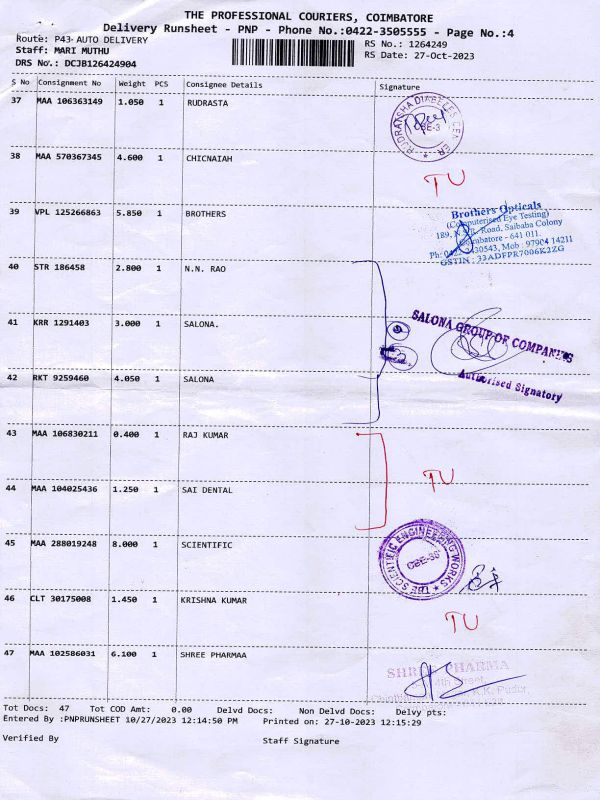 THE PROFESSIONAL COURIERS, COIMBATORE
Delivery Runsheet - PNP - Phone No.:0422-3505555 - Page No.:4
Route: P43- AUTO DELIVERY
RS No.: 1264249
Staff: MARI MUTHU
RS Date: 27-Oct-2023
DRS No.: DCJB126424904
S No Consignment No Weight PCS Consignee Details Signature
37 MAA 106363149 1.050 1 RUDRASTA
RUDRANSHA DIABETES CENTER
CBE-3
38 MAA 570367345 4.600 1 CHICNAIAH
TU
39 VPL 125266863 5.850 1 BROTHERS
Brothers Opticals
(Computerised Eye Testing)
189, Road, Saibaba Colony
Coimbatore - 641 011.
Ph: 30543, Mob : 97904 14211
GSTIN : 33ADFPR7006K2ZG
40 STR 186458 2.800 1 N.N. RAO
41 KRR 1291403 3.000 1 SALONA.
SALONA GROUP OF COMPANIES
Authorised Signatory
42 RKT 9259460 4.050 1 SALONA
43 MAA 106830211 0.400 1 RAJ KUMAR
TU
44 MAA 104025436 1.250 1 SAI DENTAL
45 MAA 288019248 8.000 1 SCIENTIFIC
THE SCIENTIFIC ENGINEERING WORKS
46 CLT 30175008 1.450 1 KRISHNA KUMAR
TU
47 MAA 102586031 6.100 1 SHREE PHARMAA
SHREE PHARMA
4th Street,
K.K. Pudur,
Tot Docs: 47 Tot COD Amt: 0.00 Delvd Docs: Non Delvd Docs: Delvy pts:
Entered By :PNPRUNSHEET 10/27/2023 12:14:50 PM Printed on: 27-10-2023 12:15:29
Verified By Staff Signature